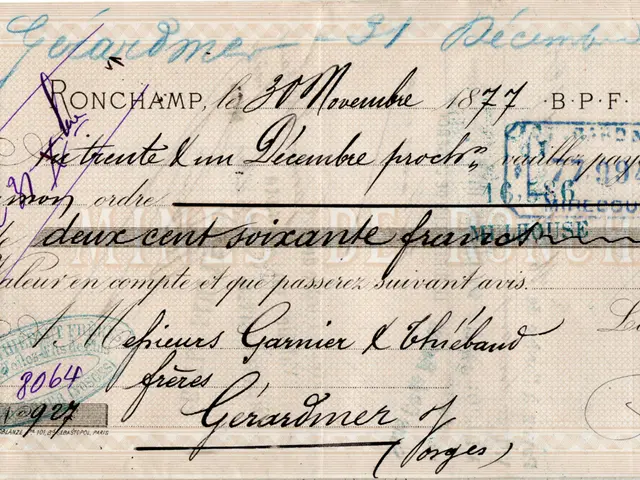 Gérardmer - 31 Décemb
RONCHAMP, le 30 Novembre 1877 B.P.F
Au trente & un Décembre proch. veuillez pay
mon ordre
16.566
MULHOUSE
deux cent soixante francs
MINES DE RONCH
Valeur en compte et que passerez suivant avis.
Messieurs Garnier & Thiébaud
frères
8064
N° 927
Gérardmer
(Vosges)